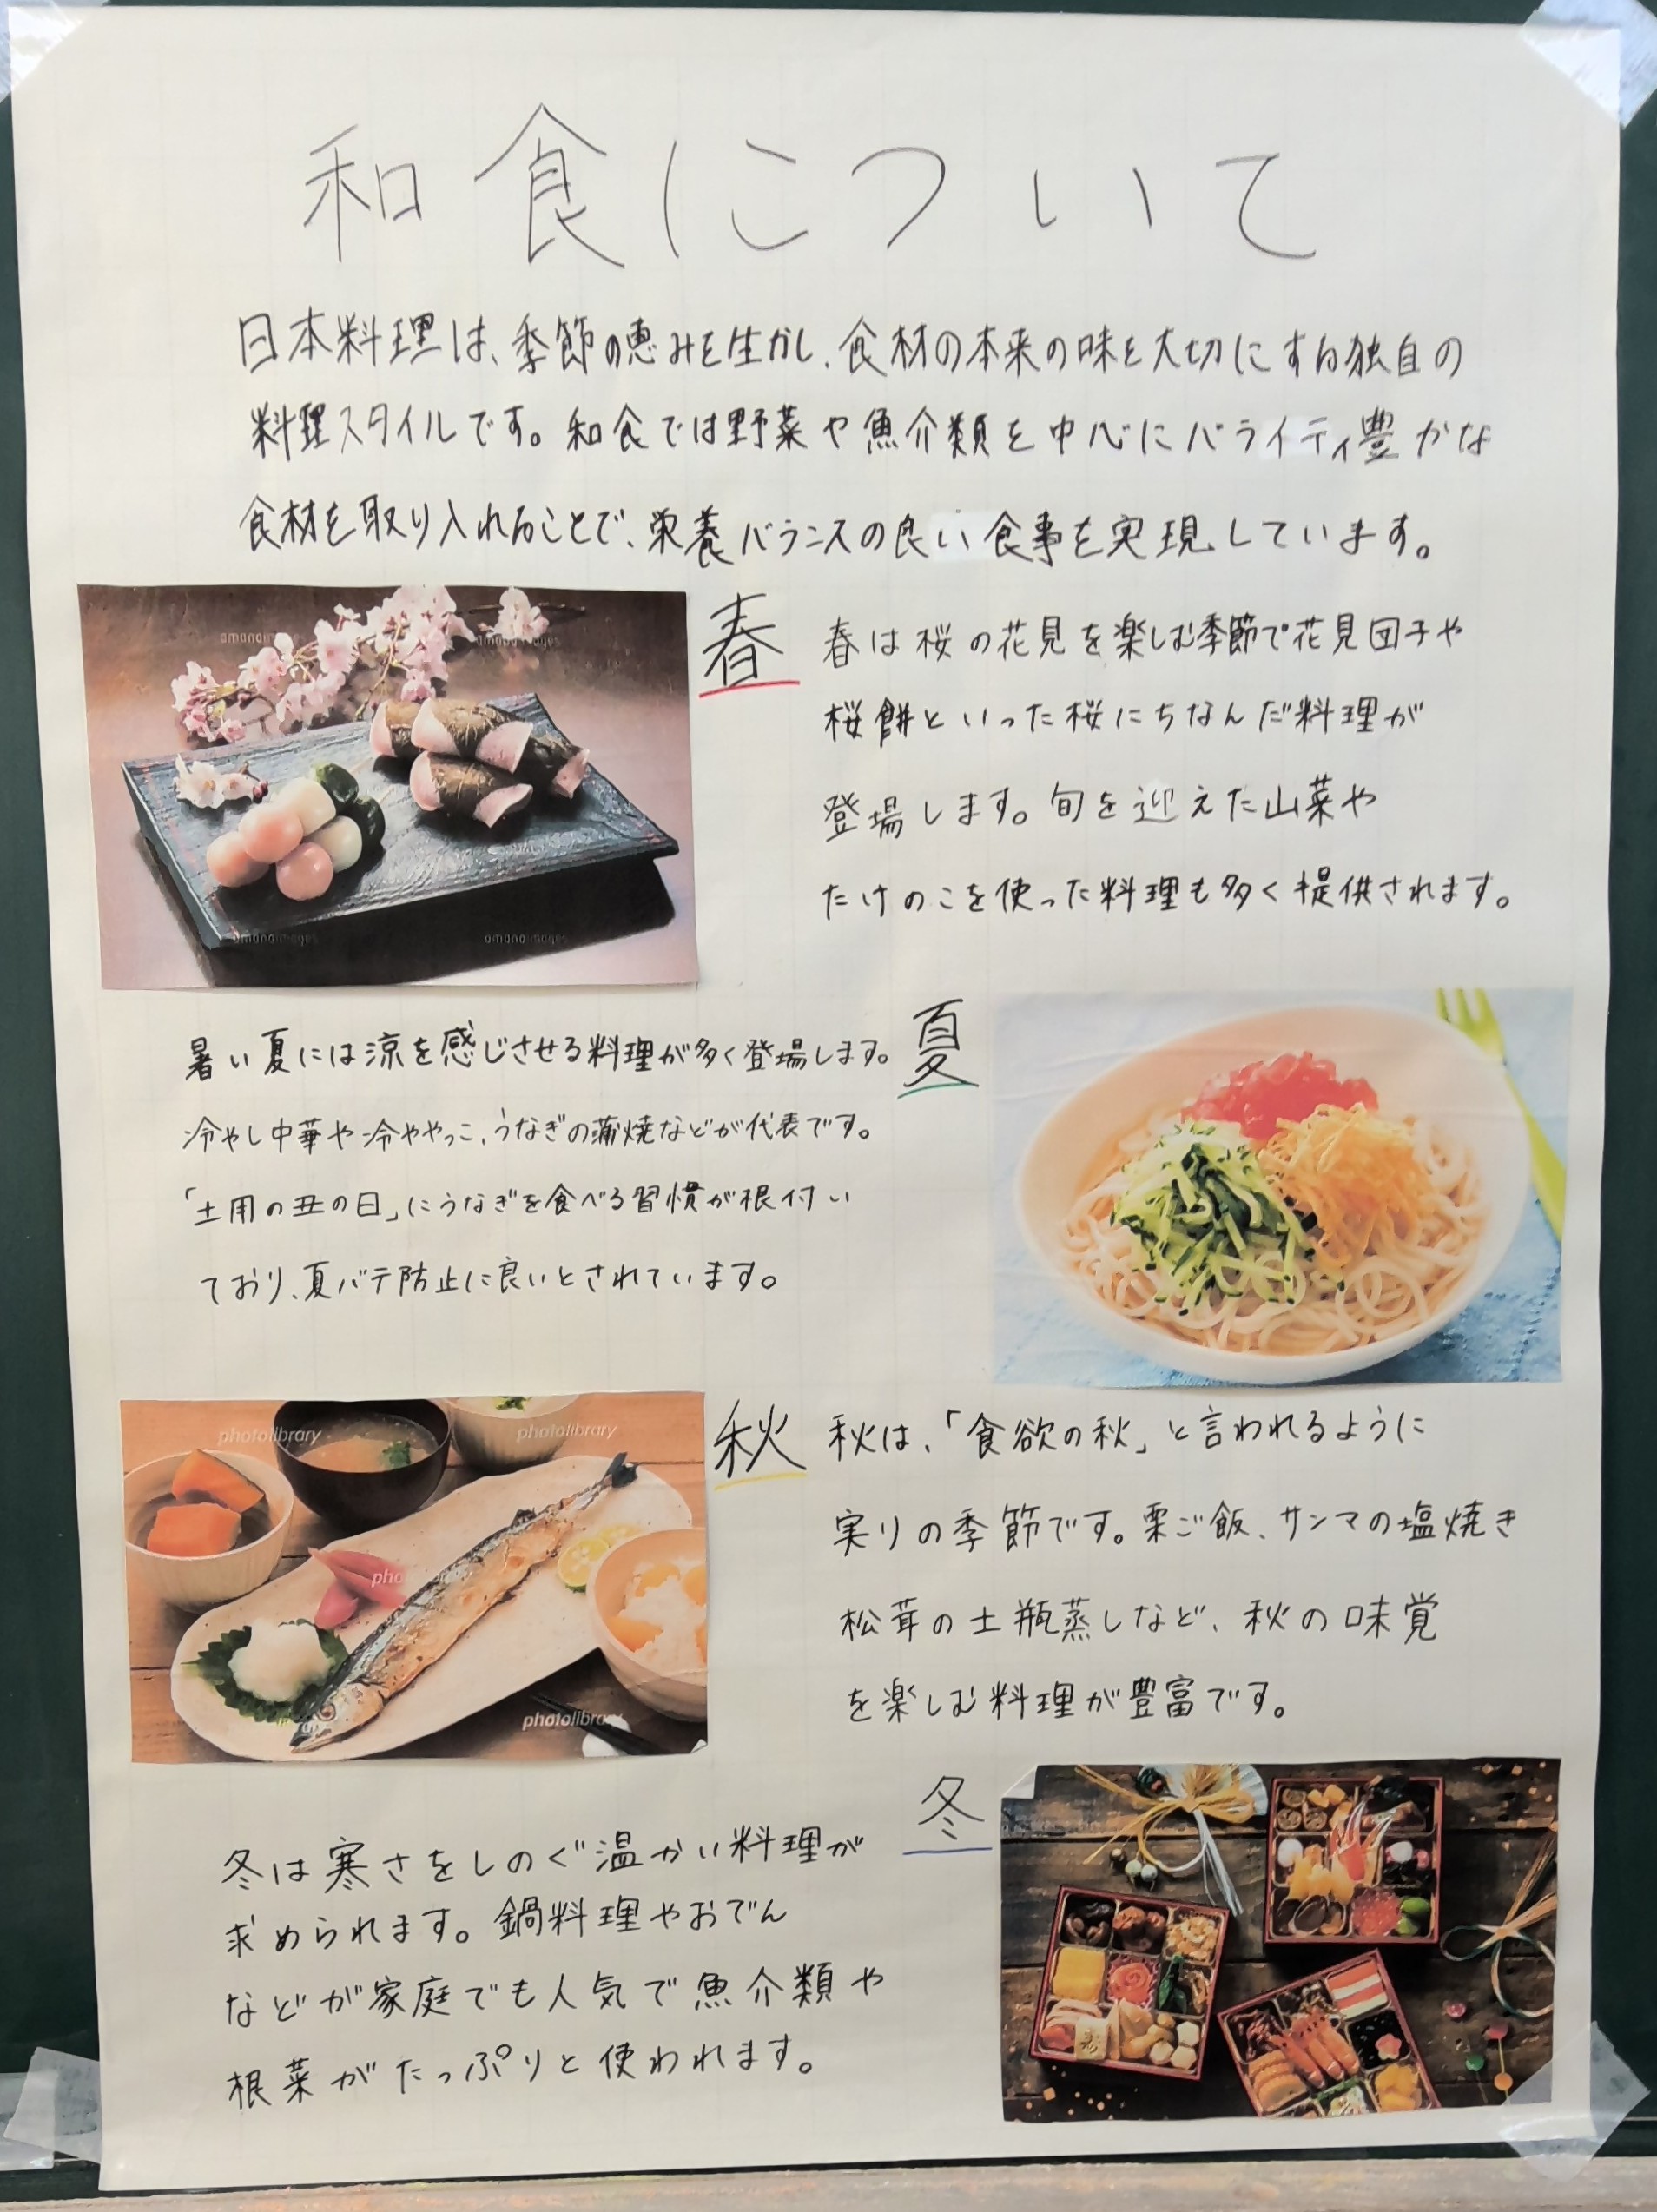 和食について
日本料理は、季節の恵みを生かし、食材の本来の味を大切にする独自の
料理スタイルです。和食では野菜や魚介類を中心にバライティ豊かな
食材を取り入れることで、栄養バランスの良い食事を実現しています。
春
春は桜の花見を楽しむ季節で花見団子や
桜餅といった桜にちなんだ料理が
登場します。旬を迎えた山菜や
たけのこを使った料理も多く提供されます。
amanaimages
amanaimages
amanaimages
amanaimages
夏
暑い夏には涼を感じさせる料理が多く登場します。
冷やし中華や冷ややっこ、うなぎの蒲焼などが代表です。
「土用の丑の日」にうなぎを食べる習慣が根付い
ており、夏バテ防止に良いとされています。
photolibrary
photolibrary
photolibrary
photolibrary
秋
秋は、「食欲の秋」と言われるように
実りの季節です。栗ご飯、サンマの塩焼き
松茸の土瓶蒸しなど、秋の味覚
を楽しむ料理が豊富です。
冬
冬は寒さをしのぐ温かい料理が
求められます。鍋料理やおでん
などが家庭でも人気で魚介類や
根菜がたっぷりと使われます。